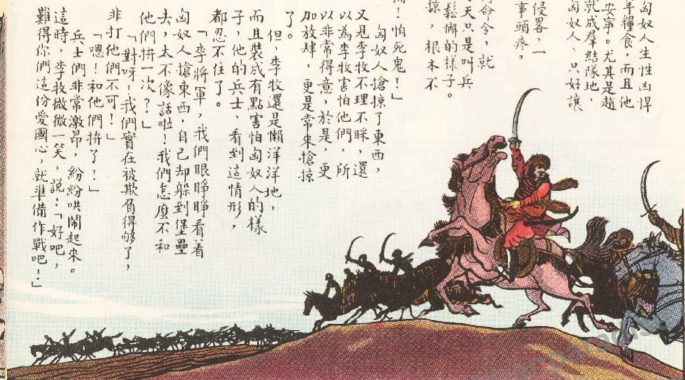 匈奴人生性凶悍
年糧食,而且他
安寧。尤其是趙
就成群結隊地,
匈奴人,只好讓
侵略,一
事頭疼。
命令,就
天只是叫兵
鬆懈的樣子。
掠,根本不
!怕死鬼!」
匈奴人搶掠了東西,
又見李牧不理不睬,還
以為李牧害怕他們,所
以非常得意,於是,更
加放肆,更是常來搶掠
了。
但,李牧還是懶洋洋地,
而且裝成有點害怕匈奴人的樣
子,他的兵士,看到這情形,
都忍不住了。
「李將軍,我們眼睜睜看着
匈奴人搶東西,自己却躲到堡壘
去,太不像話啦!我們怎麼不和
他們拼一次?」
「對呀!我們實在被欺負得够了,
非打他們不可!」
「嗯!和他們拼了!」
兵士們非常激昂,紛紛哄鬧起來。
這時,李牧微微一笑,說:「好吧,
難得你們這份愛國心,就準備作戰吧!」